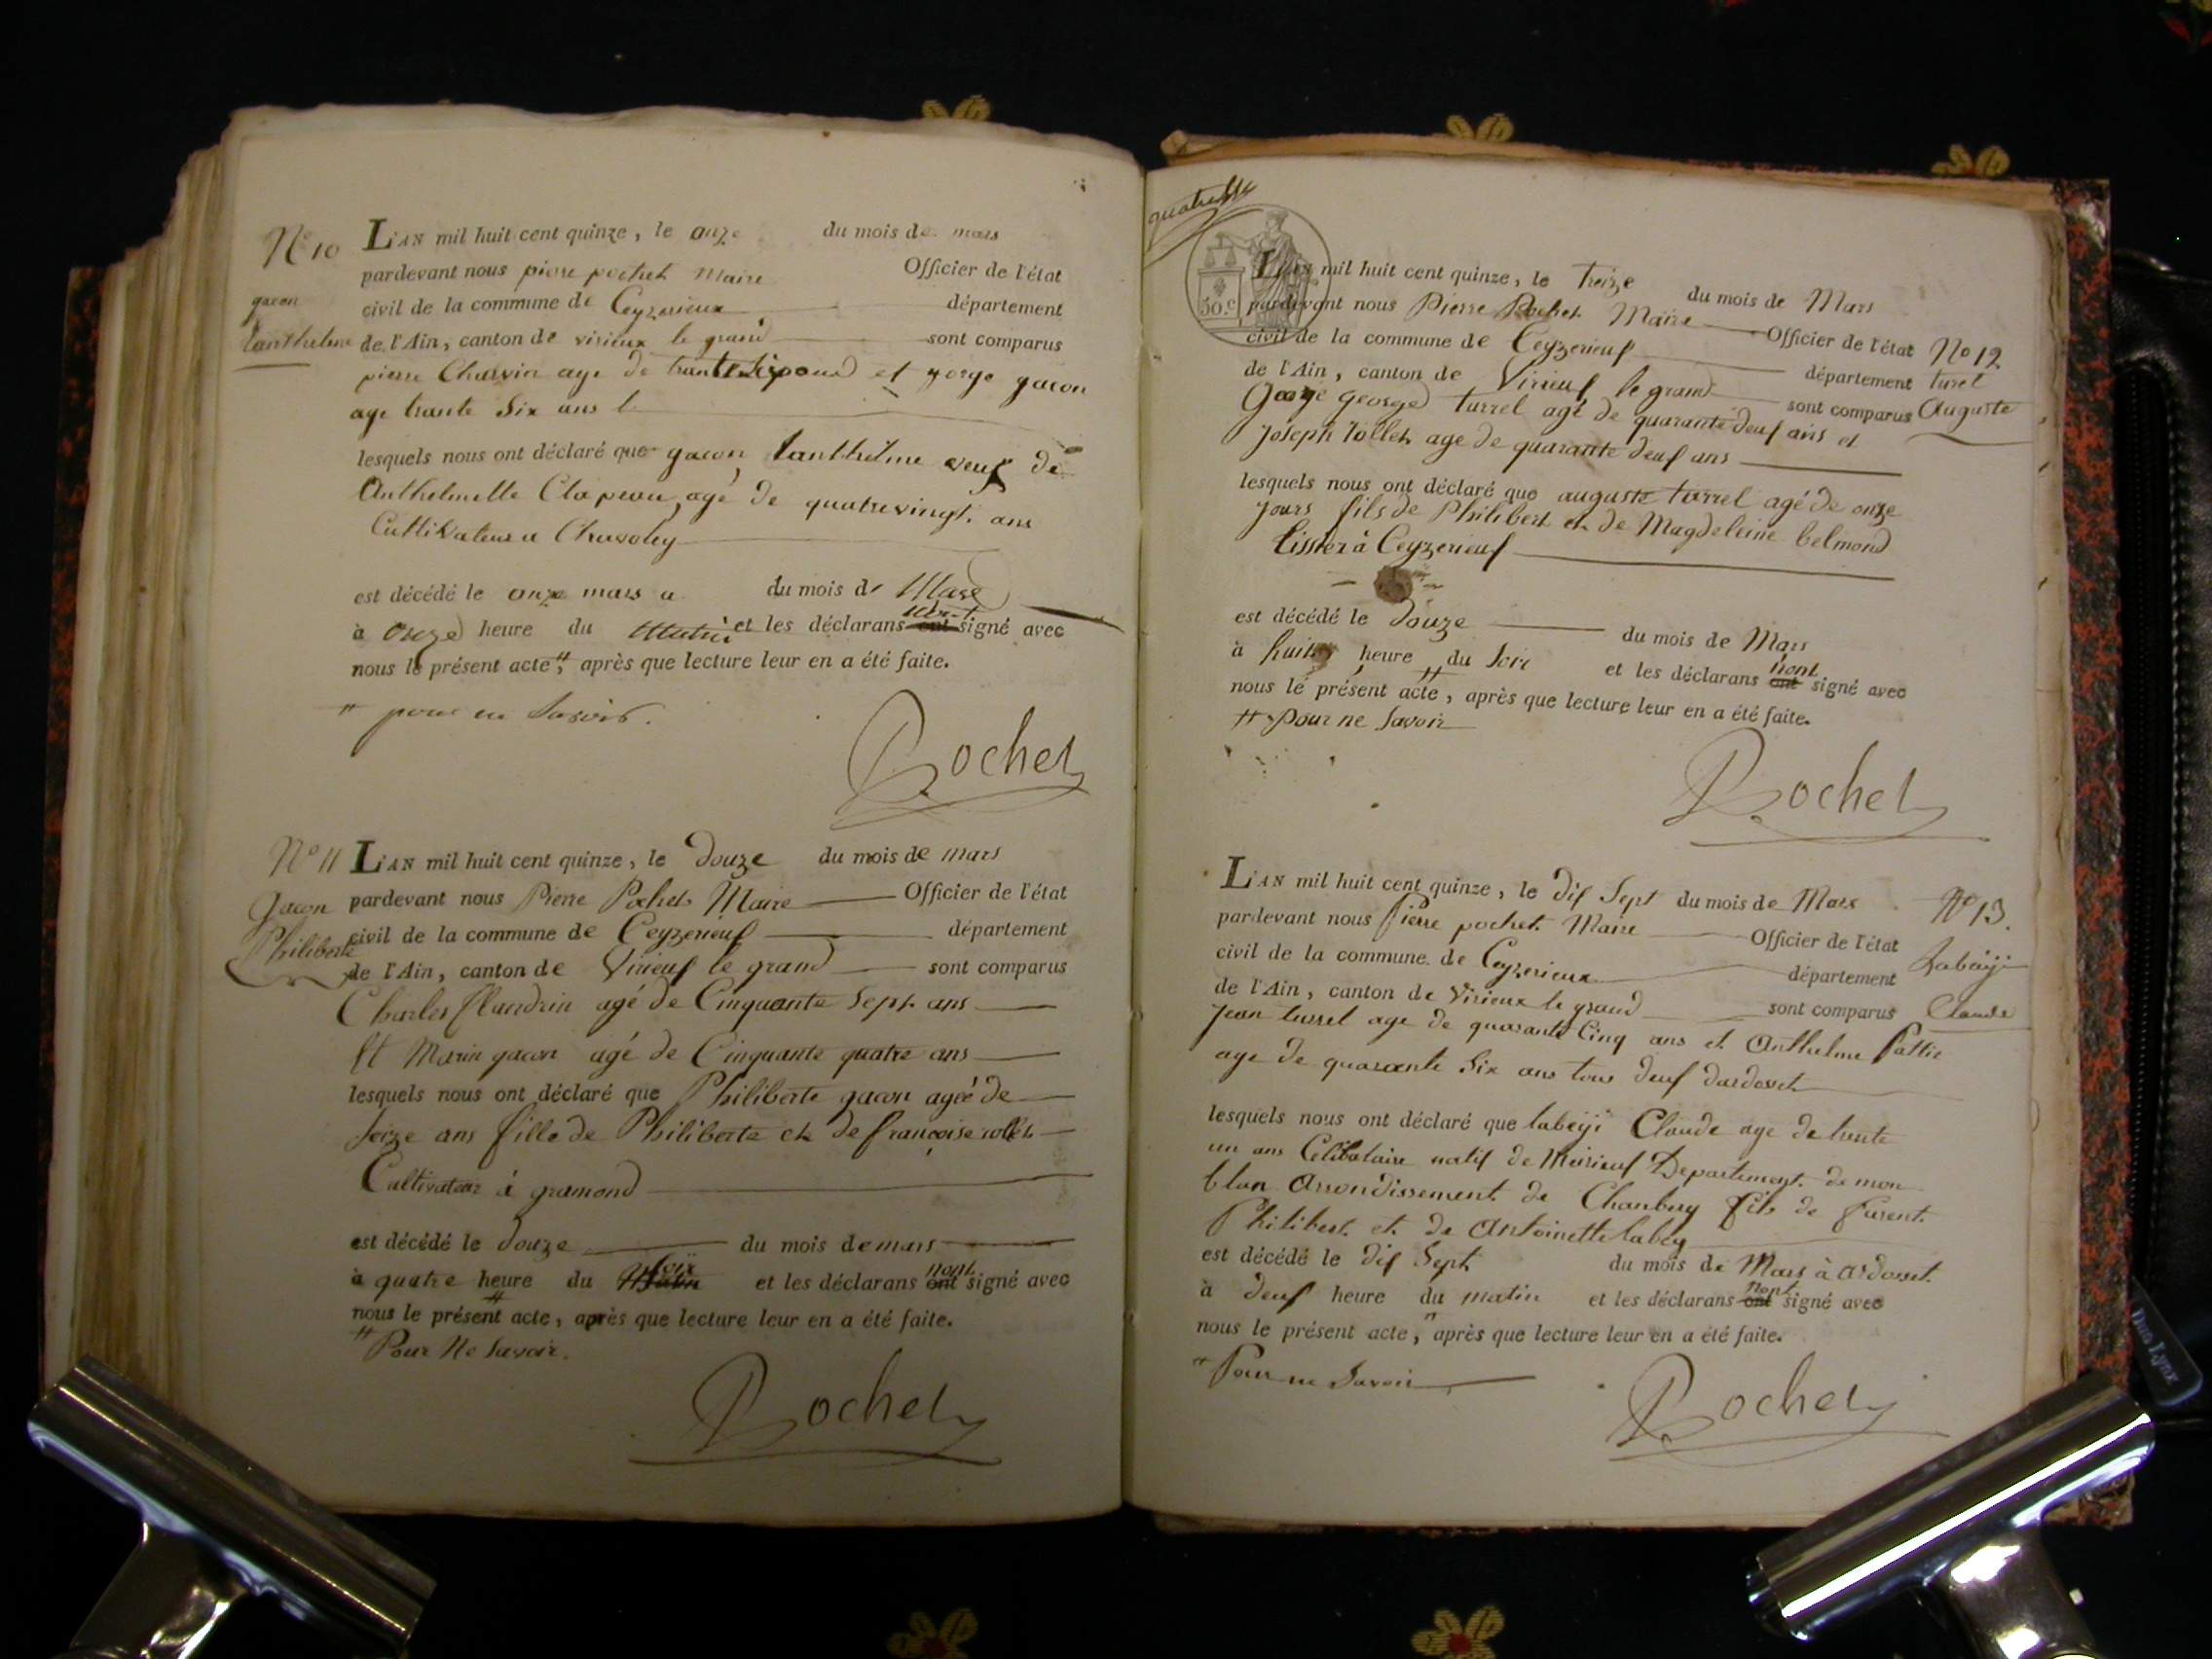 N° 10
gacon
Lanthelme
L'AN mil huit cent quinze, le onze du mois de mars
pardevant nous pierre pochet Maire Officier de l'état
civil de la commune de Ceyzerieux département
de l'Ain, canton de virieux le grand sont comparus
pierre Charvin age de et gorge gacon
age trante Six ans
lesquels nous ont déclaré que gacon Lanthelme veuf de
Anthelmette Clapeau agé de quatrevingt ans
Cultivateur a Chavoley
est décédé le onze mars a du mois de Mars
à onze heure du Matin et les déclarans ont signé avec
nous le présent acte ", après que lecture leur en a été faite.
" pour ne Savoir.
Pochet
N° 11
Gacon
Philiberte
L'AN mil huit cent quinze, le Douze du mois de mars
pardevant nous Pierre Pochet Maire Officier de l'état
civil de la commune de Ceyzerieuf département
de l'Ain, canton de Virieuf le grand sont comparus
Charles flandrin agé de Cinquante Sept ans
Et Marin gacon agé de Cinquante quatre ans
lesquels nous ont déclaré que Philiberte gacon agéé de
Seize ans fille de Philiberte et de françoise rollet
Cultivateur à gramond
est décédé le Douze du mois de mars
Soir nont
à quatre heure du Matin et les déclarans ont signé avec
nous le présent acte, après que lecture leur en a été faite.
" Pour Ne Savoir.
Pochet
50.c
L'AN mil huit cent quinze, le Treize du mois de Mars
pardevant nous Pierre Pochet Maire Officier de l'état
civil de la commune de Ceyzerieuf département
de l'Ain, canton de Virieuf le grand sont comparus
George turrel agé de quarante deuf ans et
Joseph rollet age de quarante deuf ans
N° 12
turel
Auguste
lesquels nous ont déclaré que auguste turrel agé de onze
jours fils de Philibert et de Magdeleine belmond
tissier à Ceyzerieuf
est décédé le Douze du mois de Mars
nont
à huit heure du Soir et les déclarans ont signé avec
nous le présent acte ", après que lecture leur en a été faite.
" Pour ne Savoir
Pochet
L'AN mil huit cent quinze, le dif Sept du mois de Mars
pardevant nous Pierre pochet Maire Officier de l'état
civil de la commune de Ceyzerieux département
de l'Ain, canton de Virieux le grand sont comparus
Jean turrel age de quarante Cinq ans et Anthelme
age de quarante Six ans tous deuf dardosset
N° 13.
Labeÿi
Claude
lesquels nous ont déclaré que labeÿi Claude age de trente
un ans Célibataire natif de Departement de mon
blan Arrondissement de Chanbery fils de
Philibert et de Antoinette labey
est décédé le dif Sept du mois de Mars à ardosset
nont
à deuf heure du matin et les déclarans ont signé avec
nous le présent acte, " après que lecture leur en a été faite.
" Pour ne Savoir
Pochet
Duo Lynx